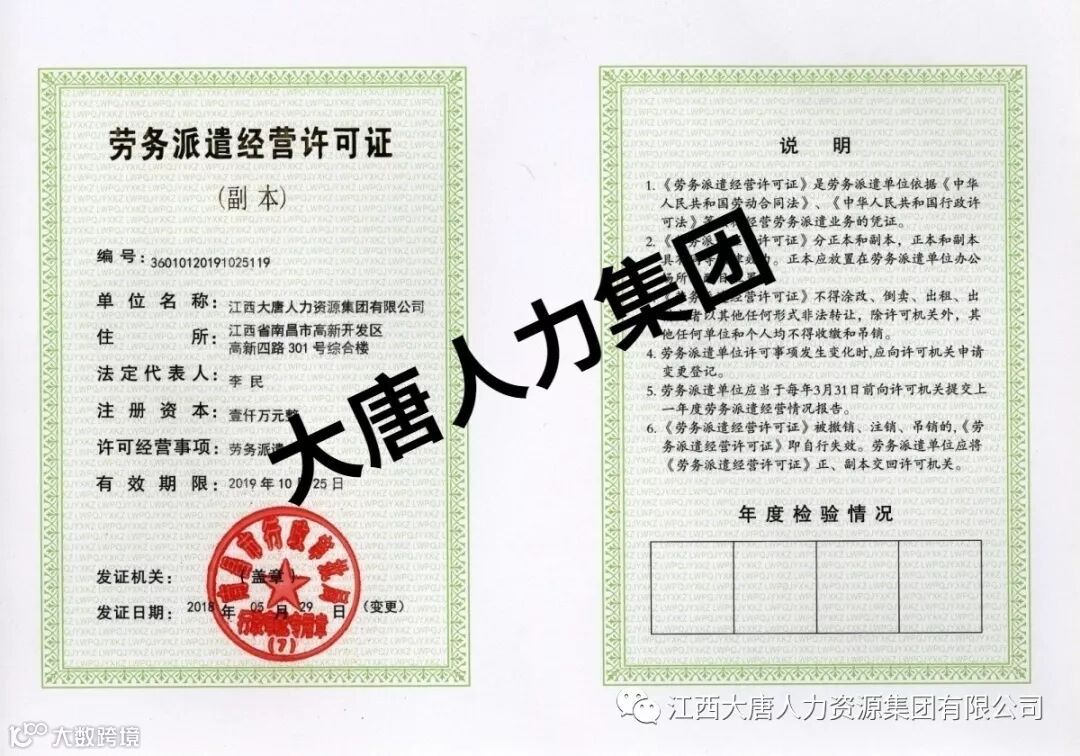 劳务派遣经营许可证
(副本)
编号:36010120191025119
单位名称:江西大唐人力资源集团有限公司
住所:江西省南昌市高新开发区
高新四路301号综合楼
法定代表人:李民
注册资本:壹仟万元整
许可经营事项:劳务派遣
有效期限:2019年10月25日
发证机关:(盖章)
发证日期:2018年05月29日(变更)
南昌市行政审批局
行政审批专用章
(7)
大唐人力集团
说 明
1.《劳务派遣经营许可证》是劳务派遣单位依据《中华
人民共和国劳动合同法》、《中华人民共和国行政许
可法》等 经营劳务派遣业务的凭证。
2.《劳务派遣经营许可证》分正本和副本,正本和副本
具 律效力。正本应放置在劳务派遣单位办公
场所 目
《劳务派遣经营许可证》不得涂改、倒卖、出租、出
者以其他任何形式非法转让,除许可机关外,其
他任何单位和个人均不得收缴和吊销。
4.劳务派遣单位许可事项发生变化时,应向许可机关申请
变更登记。
5.劳务派遣单位应当于每年3月31日前向许可机关提交上
一年度劳务派遣经营情况报告。
6.《劳务派遣经营许可证》被撤销、注销、吊销的,《劳
务派遣经营许可证》即自行失效。劳务派遣单位应将
《劳务派遣经营许可证》正、副本交回许可机关。
年度检验情况
江西大唐人力资源集团有限公司
大数跨境